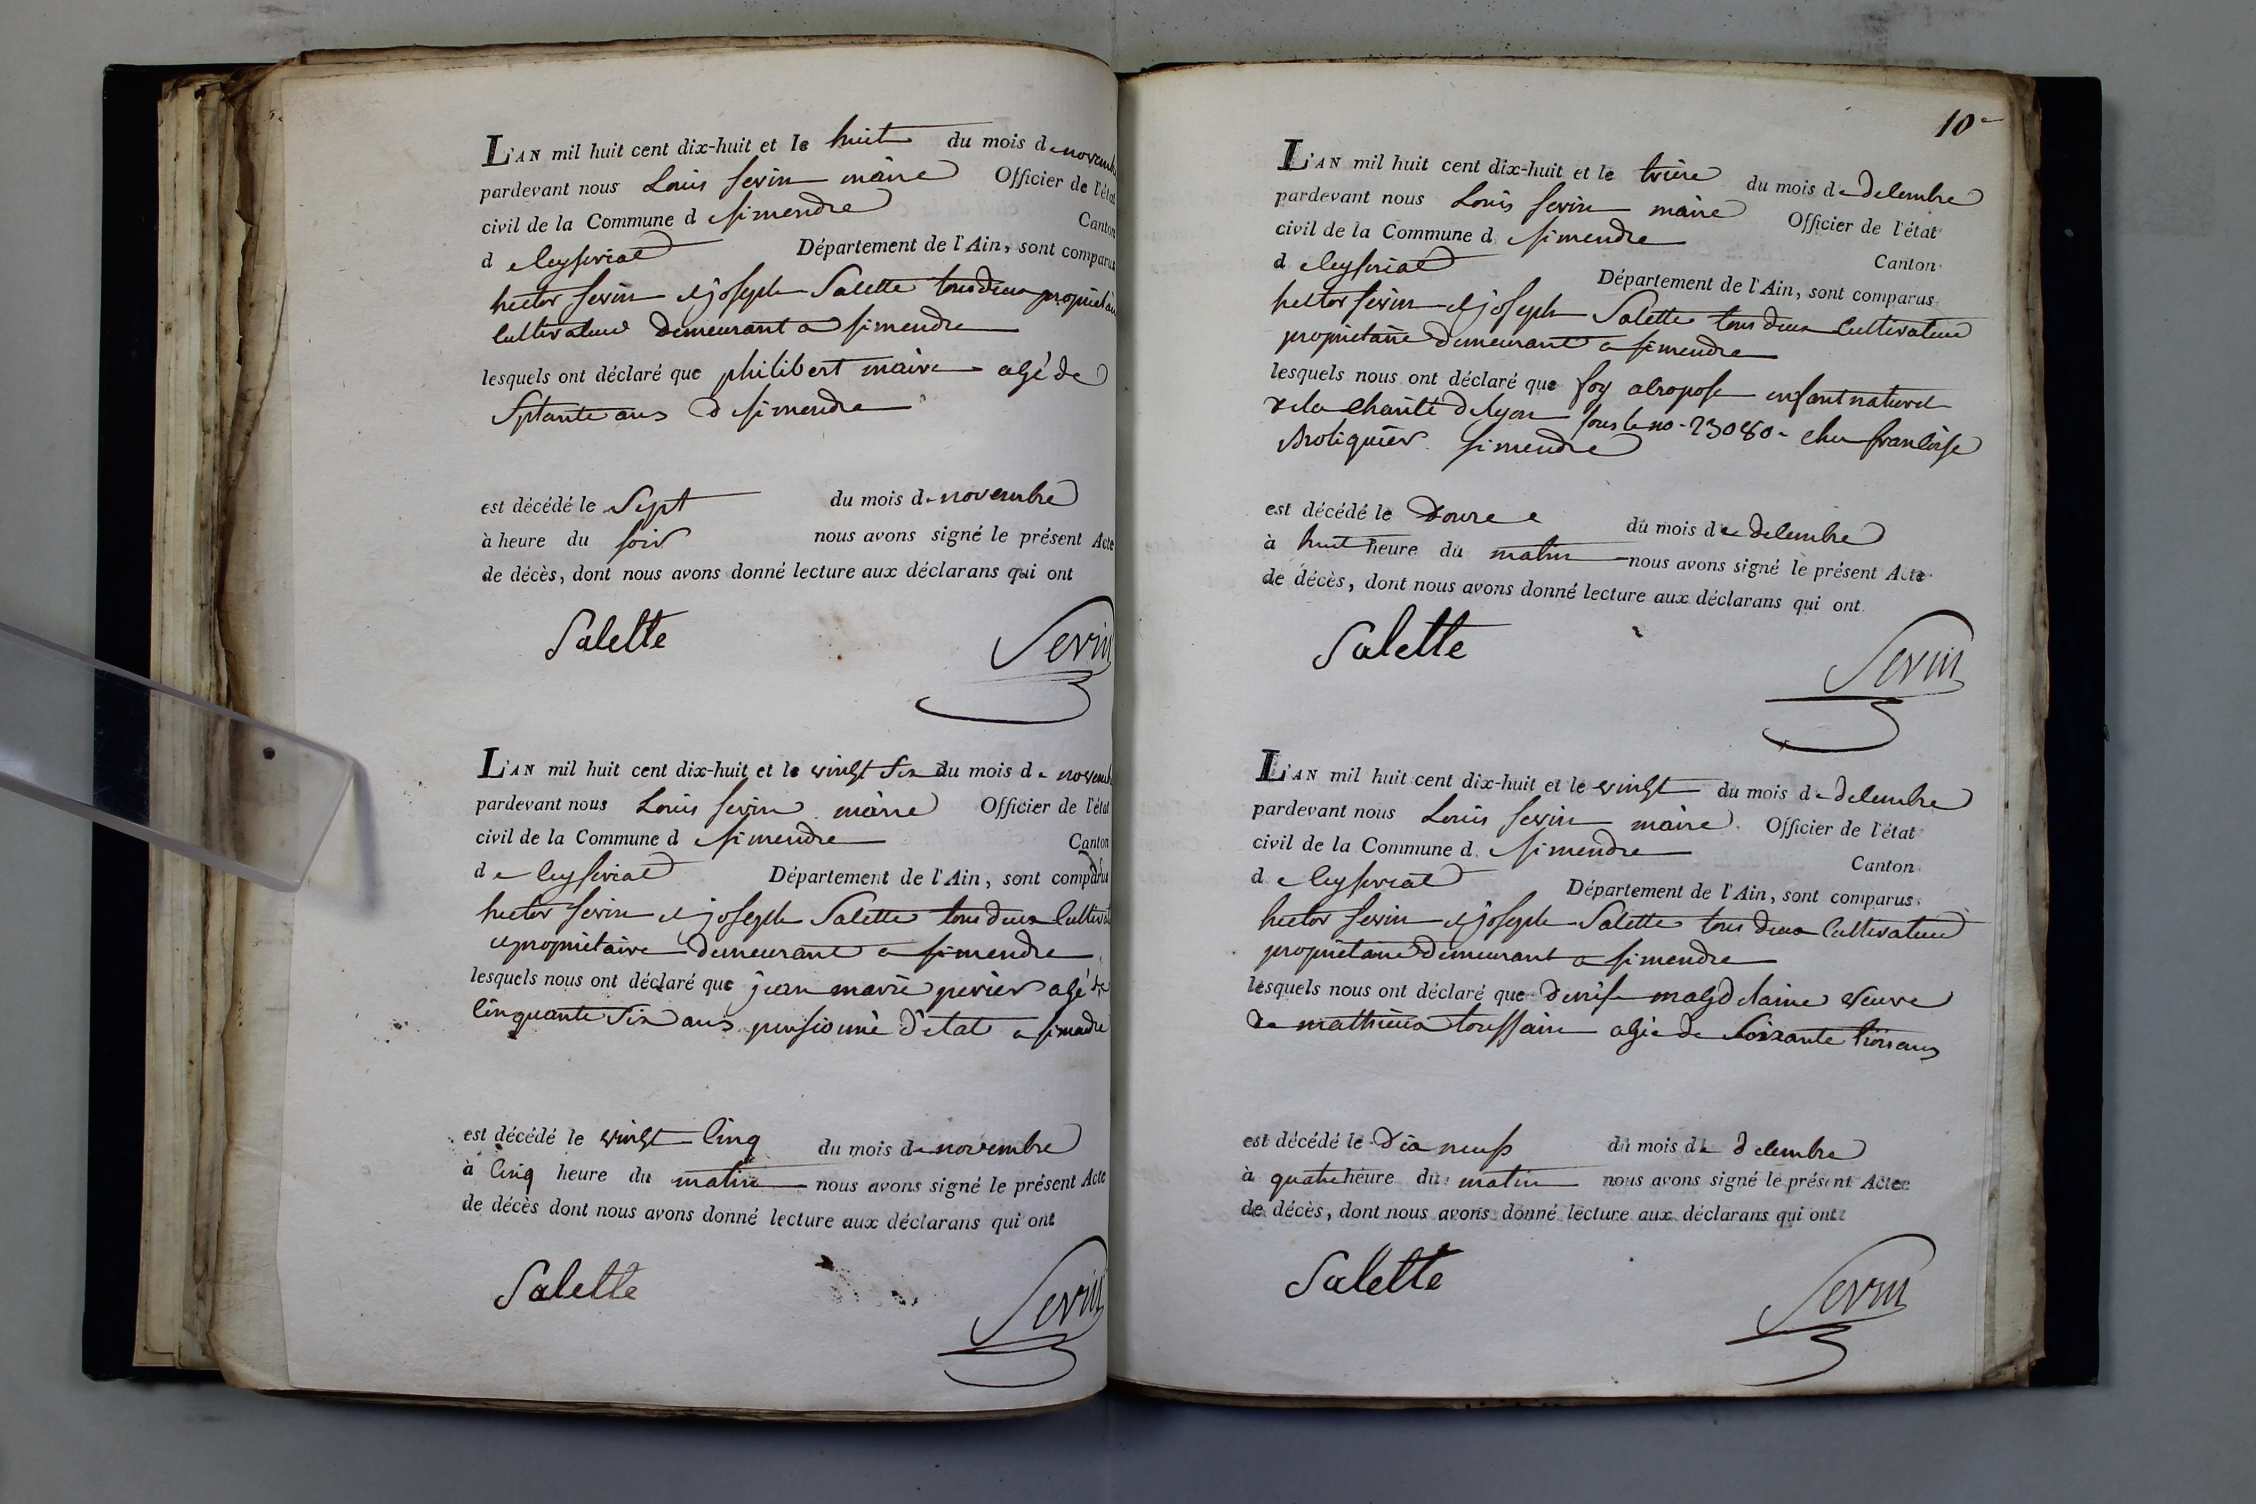 L'AN mil huit cent dix-huit et le huit du mois de novemb
pardevant nous Louis sevin maire Officier de l'état
civil de la Commune d simendre Canton
d e Ceyseriat Département de l'Ain, sont comparus
hector sevin et joseph Salette tous deux propriétai
Cultivateur demeurant a simendre
lesquels ont déclaré que philibert maire agé de
septante ans d simendre
est décédé le sept du mois de novembre
à heure du soir nous avons signé le présent Acte
de décès, dont nous avons donné lecture aux déclarans qui ont
Salette Sevin
L'AN mil huit cent dix-huit et le vingt six du mois de novemb
pardevant nous Louis sevin maire Officier de l'état
civil de la Commune d simendre Canton
d e Ceyseriat Département de l'Ain, sont comparus
hector sevin et joseph Salette tous deux Cultivat
et propriétaire demeurant a simendre
lesquels nous ont déclaré que jean marie perier agé de
Cinquante six ans pensionné d'état a simadre
est décédé le vingt Cinq du mois de novembre
à Cinq heure du matin nous avons signé le présent Acte
de décès dont nous avons donné lecture aux déclarans qui ont
Salette Sevin
10
L'AN mil huit cent dix-huit et le trieze du mois de decembre
pardevant nous Louis sevin maire Officier de l'état
civil de la Commune d simendre Canton
d e Ceyseriat Département de l'Ain, sont comparus
hector sevin et joseph Salette tous deux Cultivateur
propriétaire demeurant a simendre
lesquels nous ont déclaré que foy enfant naturel
de la Charité de lyon sous le no - 23080 - chez francoise
Broliquier simendre
est décédé le douze du mois de decembre
à huit heure du matin nous avons signé le présent Acte
de décès, dont nous avons donné lecture aux déclarans qui ont
Salette Sevin
L'AN mil huit cent dix-huit et le vingt du mois de decembre
pardevant nous Louis sevin maire Officier de l'état
civil de la Commune d simendre Canton
d e Ceyseriat Département de l'Ain, sont comparus
hector sevin et joseph Salette tous deux Cultivateur
propriétaire demeurant a simendre
lesquels nous ont déclaré que denise magdelaine veuve
de mathieux toussain agée de soixante trois ans
est décédé le dix neuf du mois de decembre
à quatre heure du matin nous avons signé le présent Acte
de décès, dont nous avons donné lecture aux déclarans qui ont
Salette Sevin